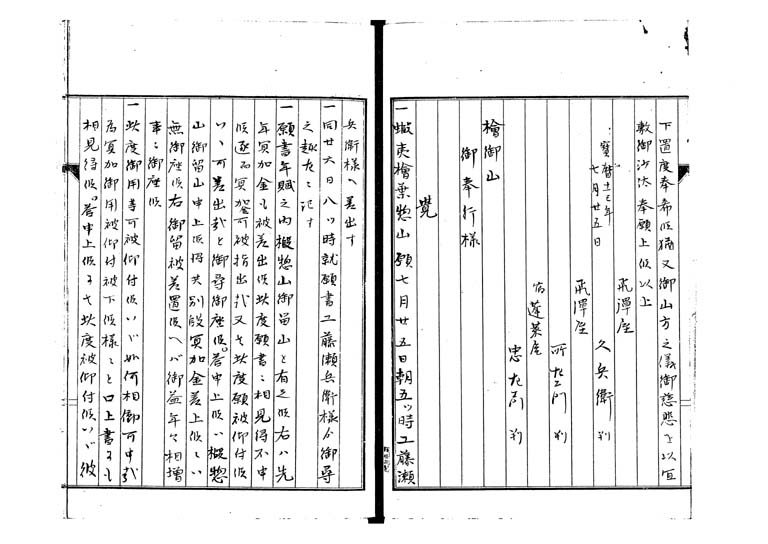 下置度奉希候猶又御山方之儀御慈悲を以宜
敷御沙汰奉願上候以上
宝暦十三年
七月廿五日
飛騨屋
久兵衛 判
飛騨屋
所左エ門 判
蓬莱屋
忠右衛門 判
檜御山
御奉行様
覚
一蝦夷檜葉惣山願七月廿五日朝五ツ時工藤瀬
兵衛様へ差出す
一同廿六日八ツ時就願書工藤瀬兵衛様ゟ御尋
之趣左ニ記す
一願書年賦之内椴惣山御留山と有之候右ハ先
年冥加金も被差出候此度願書ニ相見得不申
候逐而冥加可被指出哉又者此度願被仰付候
ハヽ可差出哉と御尋御座候。答申上候ハ椴惣
山御留山申上候得共別段冥加金差上候ニハ
無御座候右御留被差置候ヘバ御益年々相増
事ニ御座候
一此度御用等可被仰付候ハヾ如何相御可申哉
為冥加御用被仰付被下候様ニと口上書ニも
相見得候。答申上候ニ者此度被仰付候ハヾ彼